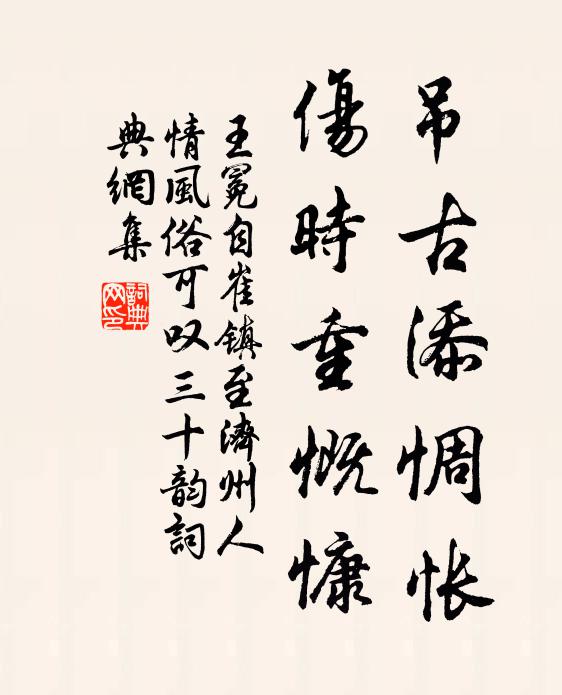 吊古添惆怅
傷時重慨慷
王冕自崔鎮至濟州人
情風俗可叹三十韵詞
典網集
詞典网印